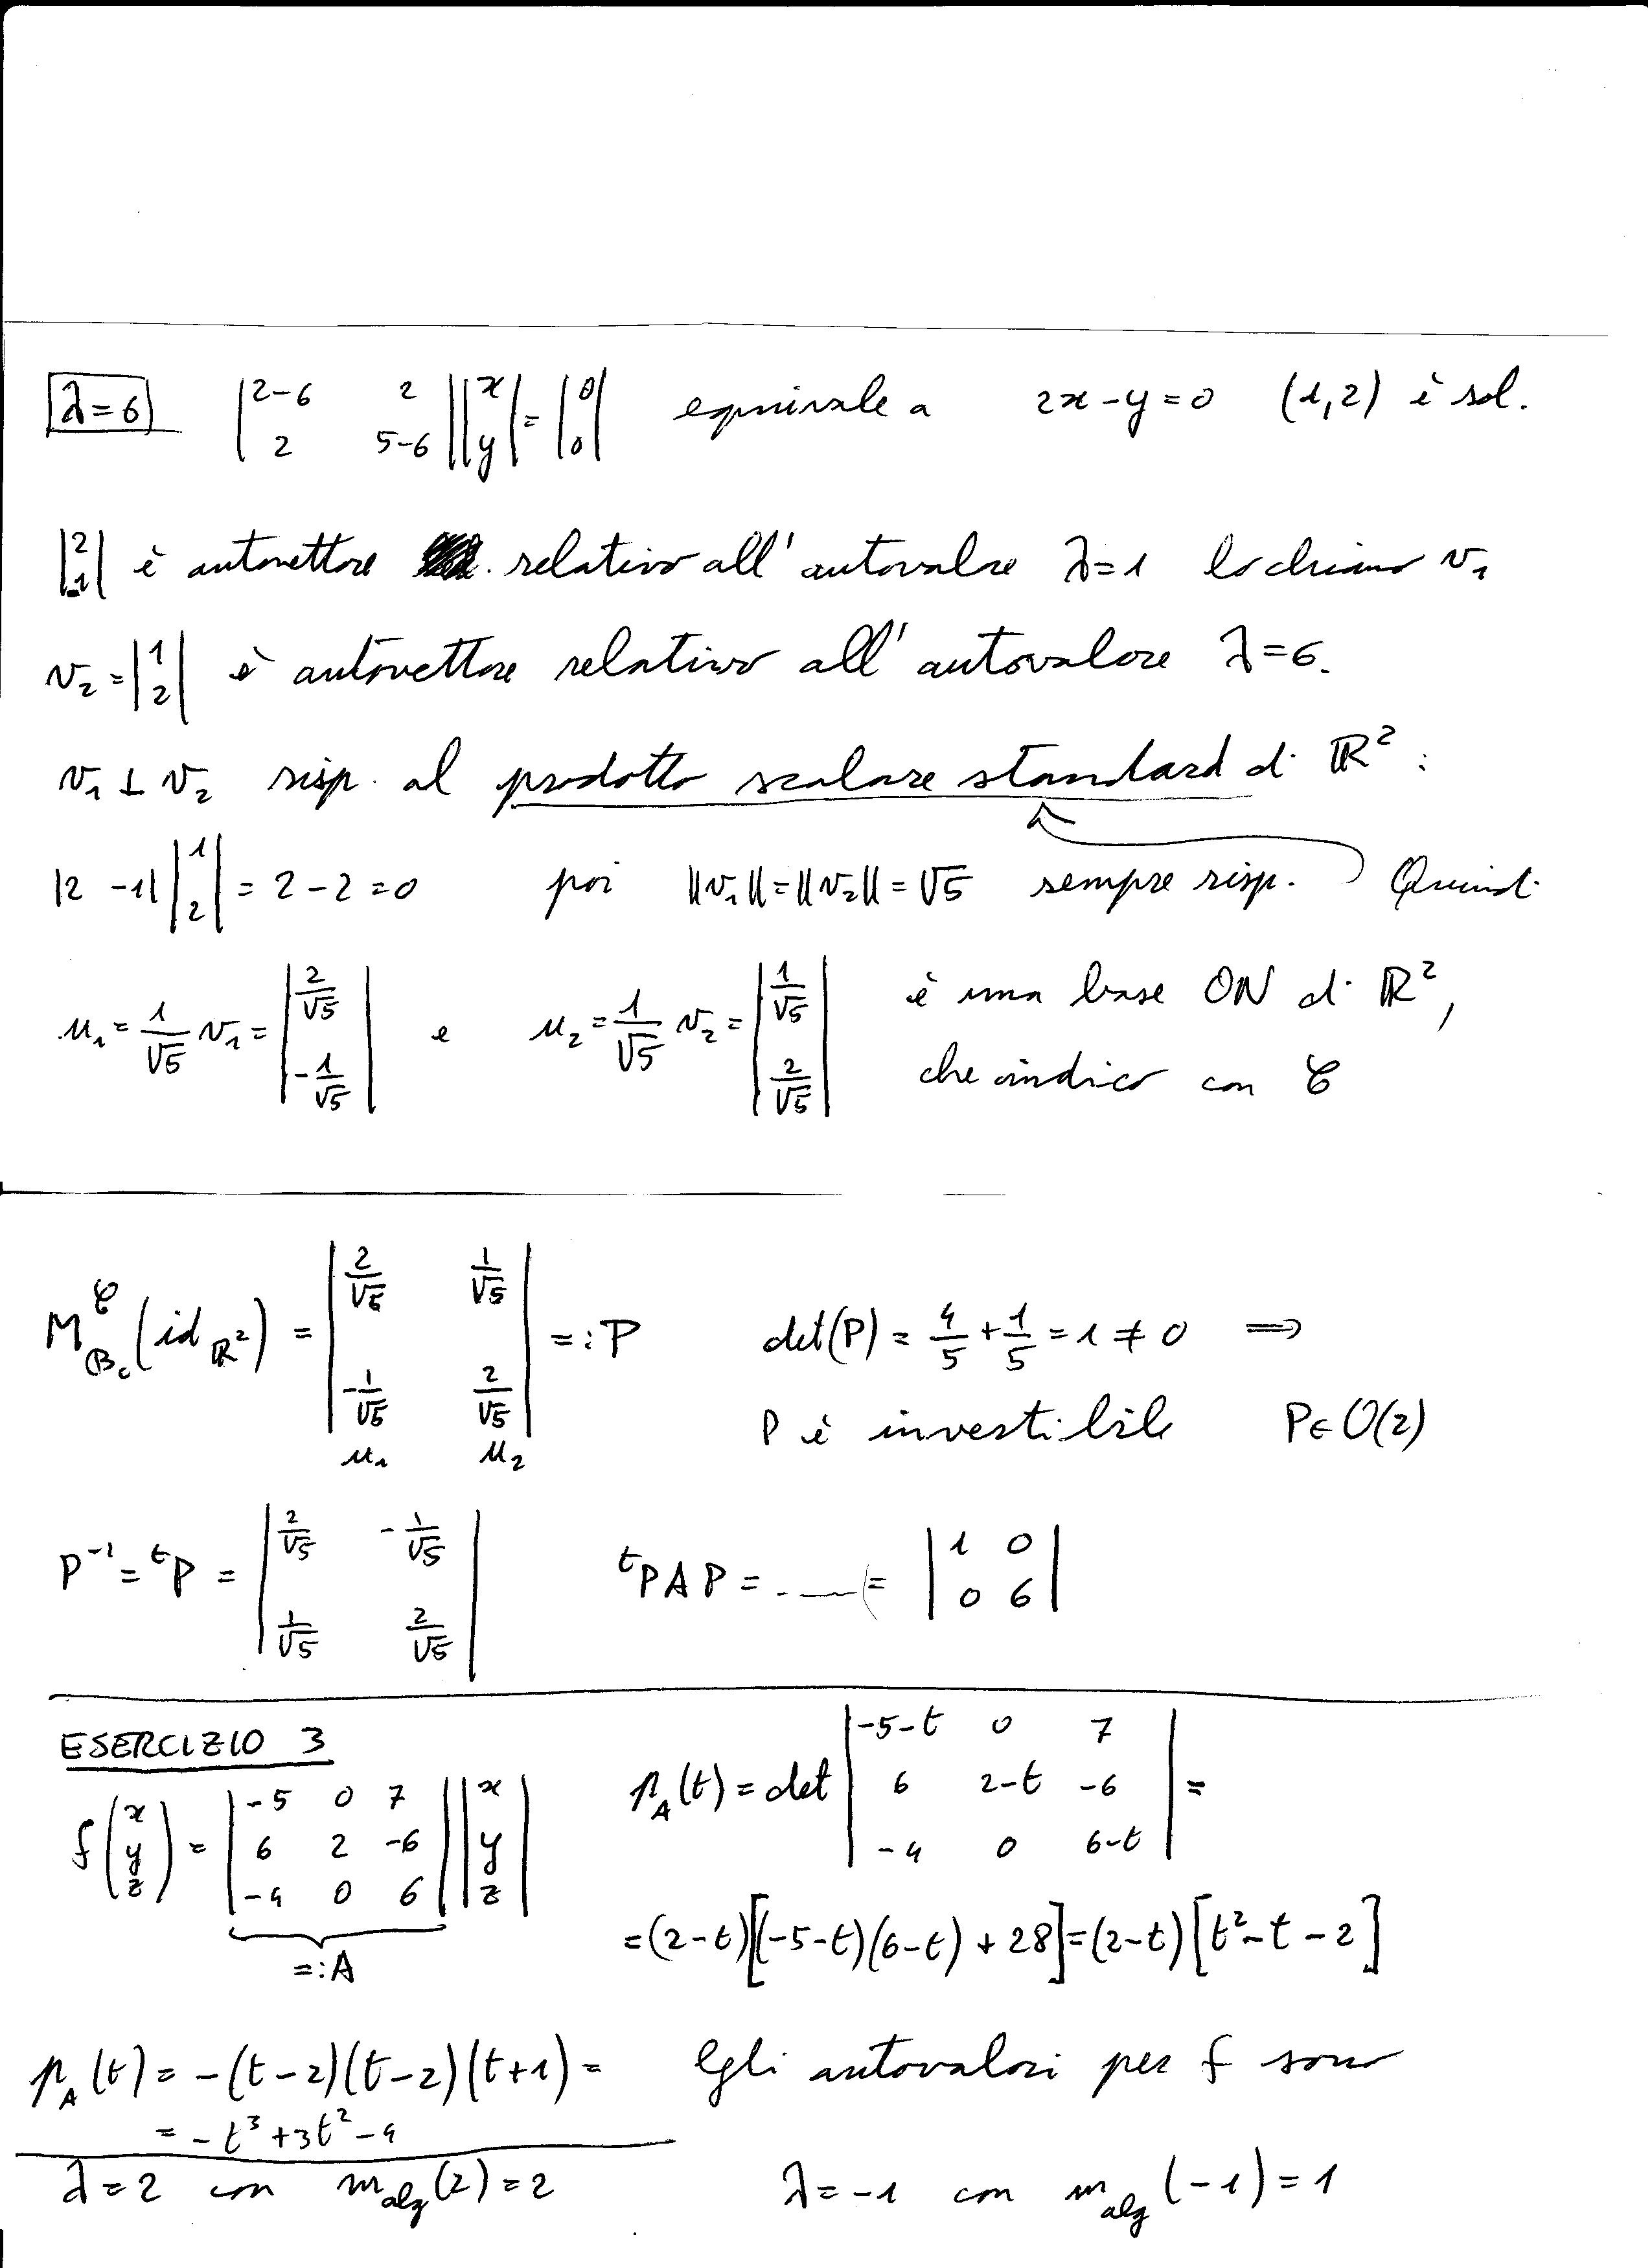 λ=6 |2-6 2; 2 5-6| |x; y| = |0; 0| equivale a 2x-y=0 (1,2) è sol.
|2; -1| è autovettore relativo all'autovalore λ=1 lo chiamo v₁
v₂=|1; 2| è autovettore relativo all'autovalore λ=6.
v₁ ⊥ v₂ risp. al prodotto scalare standard di ℝ² :
|2 -1| |1; 2| = 2-2=0 poi ‖v₁‖=‖v₂‖=√5 sempre risp. Quindi
u₁ = 1/√5 v₁ = |2/√5; -1/√5| e u₂ = 1/√5 v₂ = |1/√5; 2/√5| è una base ON di ℝ²,
che indico con 𝒞
M^𝒞_ℬc (id_ℝ²) = |2/√5 1/√5; -1/√5 2/√5| =: P det(P) = 4/5 + 1/5 = 1 ≠ 0 ⟹
u₁ u₂ P è invertibile P∈O(2)
P⁻¹ = ᵗP = |2/√5 -1/√5; 1/√5 2/√5| ᵗPAP = ... = |1 0; 0 6|
ESERCIZIO 3
f(x; y; z) = |-5 0 7; 6 2 -6; -4 0 6| |x; y; z| p_A(t) = det |-5-t 0 7; 6 2-t -6; -4 0 6-t| =
=:A
=(2-t)[(-5-t)(6-t)+28]=(2-t)[t²-t-2]
p_A(t) = -(t-2)(t-2)(t+1) = Gli autovalori per f sono
= -t³+3t²-4
λ=2 con m_alg(2)=2 λ=-1 con m_alg(-1)=1